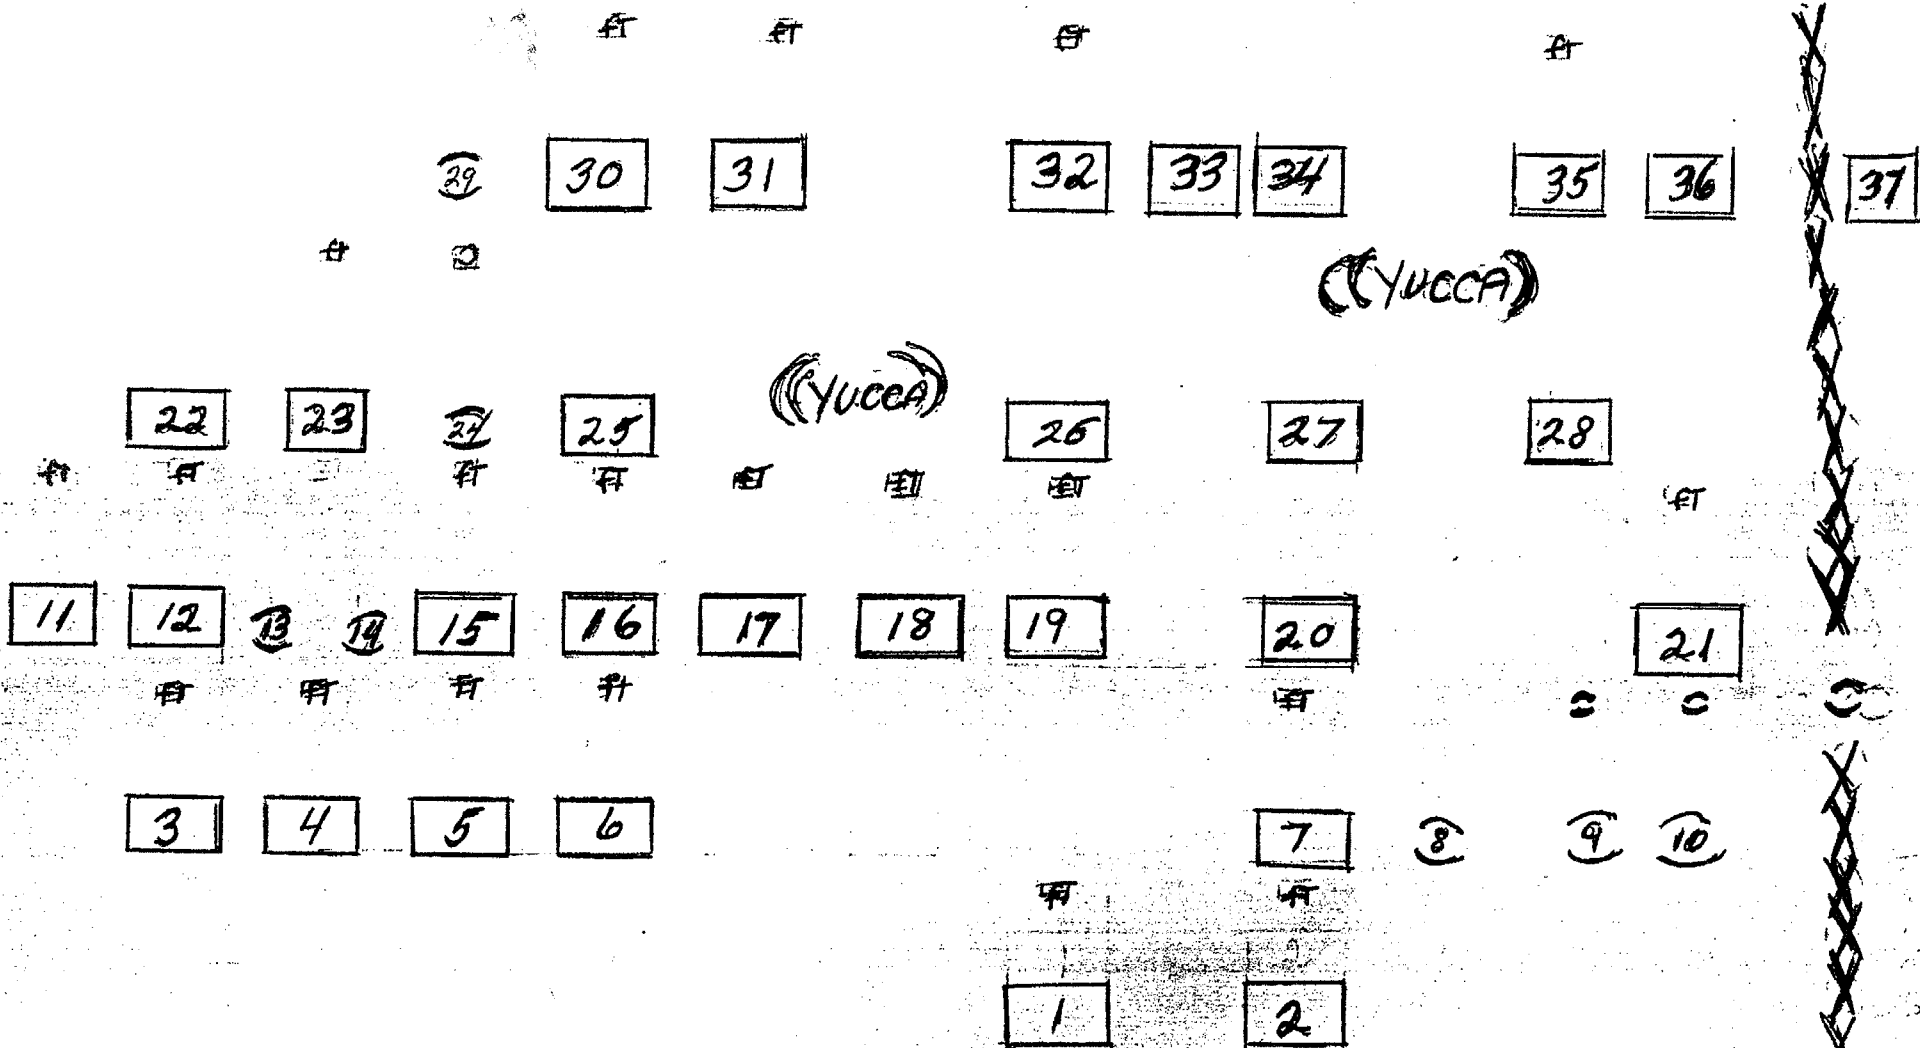 fT fT fT fT
29 30 31 32 33 34 35 36 37
ft
YUCCA
YUCCA
22 23 24 25 26 27 28
ft fT fT fT fT fT fT
fT
11 12 13 14 15 16 17 18 19 20 21
fT fT fT ft fT
3 4 5 6 7 8 9 10
fT fT
1 2